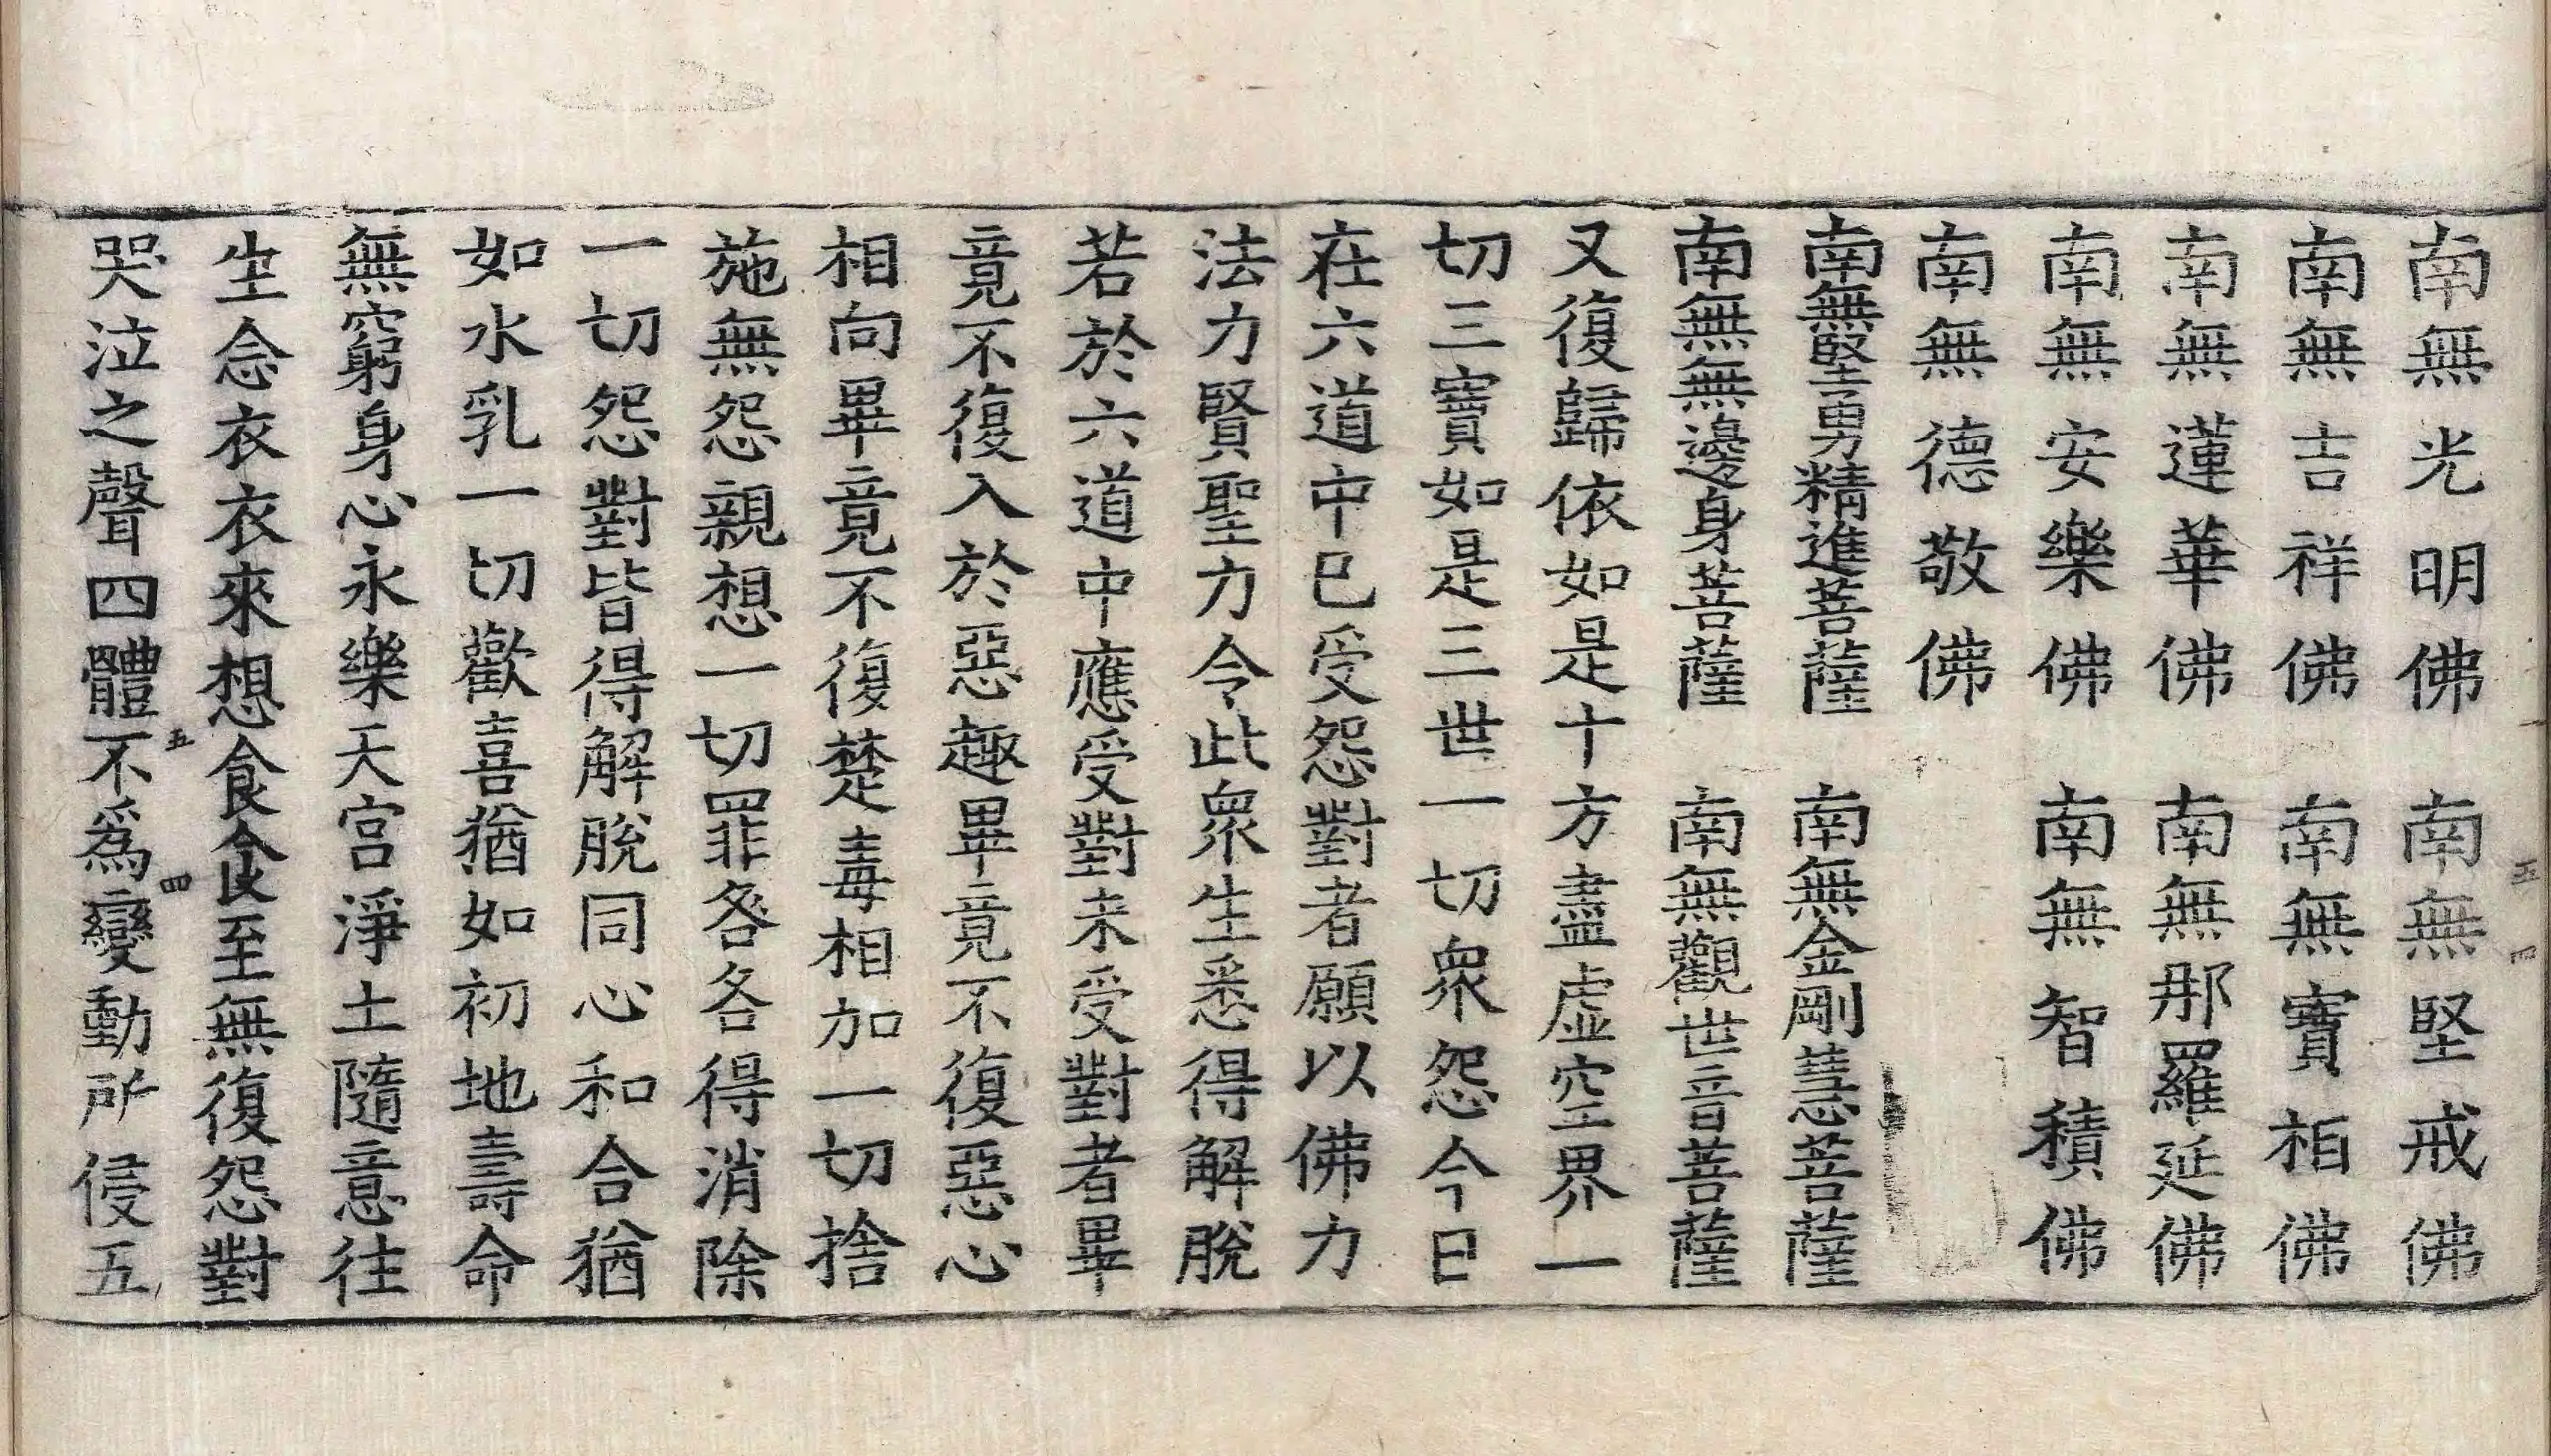 南無光明佛　南無堅戒佛
南無吉祥佛　南無寶相佛
南無蓮華佛　南無那羅延佛
南無安樂佛　南無智積佛
南無德敬佛
南無堅勇精進菩薩　南無金剛慧菩薩
南無無邊身菩薩　南無觀世音菩薩
又復歸依如是十方盡虛空界一
切三寶如是三世一切衆怨今日
在六道中已受怨對者願以佛力
法力賢聖力令此衆生悉得解脫
若於六道中應受對未受對者畢
竟不復入於惡趣畢竟不復惡心
相向畢竟不復楚毒相加一切捨
施無怨親想一切罪各各得消除
一切怨對皆得解脫同心和合猶
如水乳一切歡喜猶如初地壽命
無窮身心永樂天宮淨土隨意往
生念衣衣來想食食至無復怨對
哭泣之聲四體不爲變動所侵五
五
四
五
四